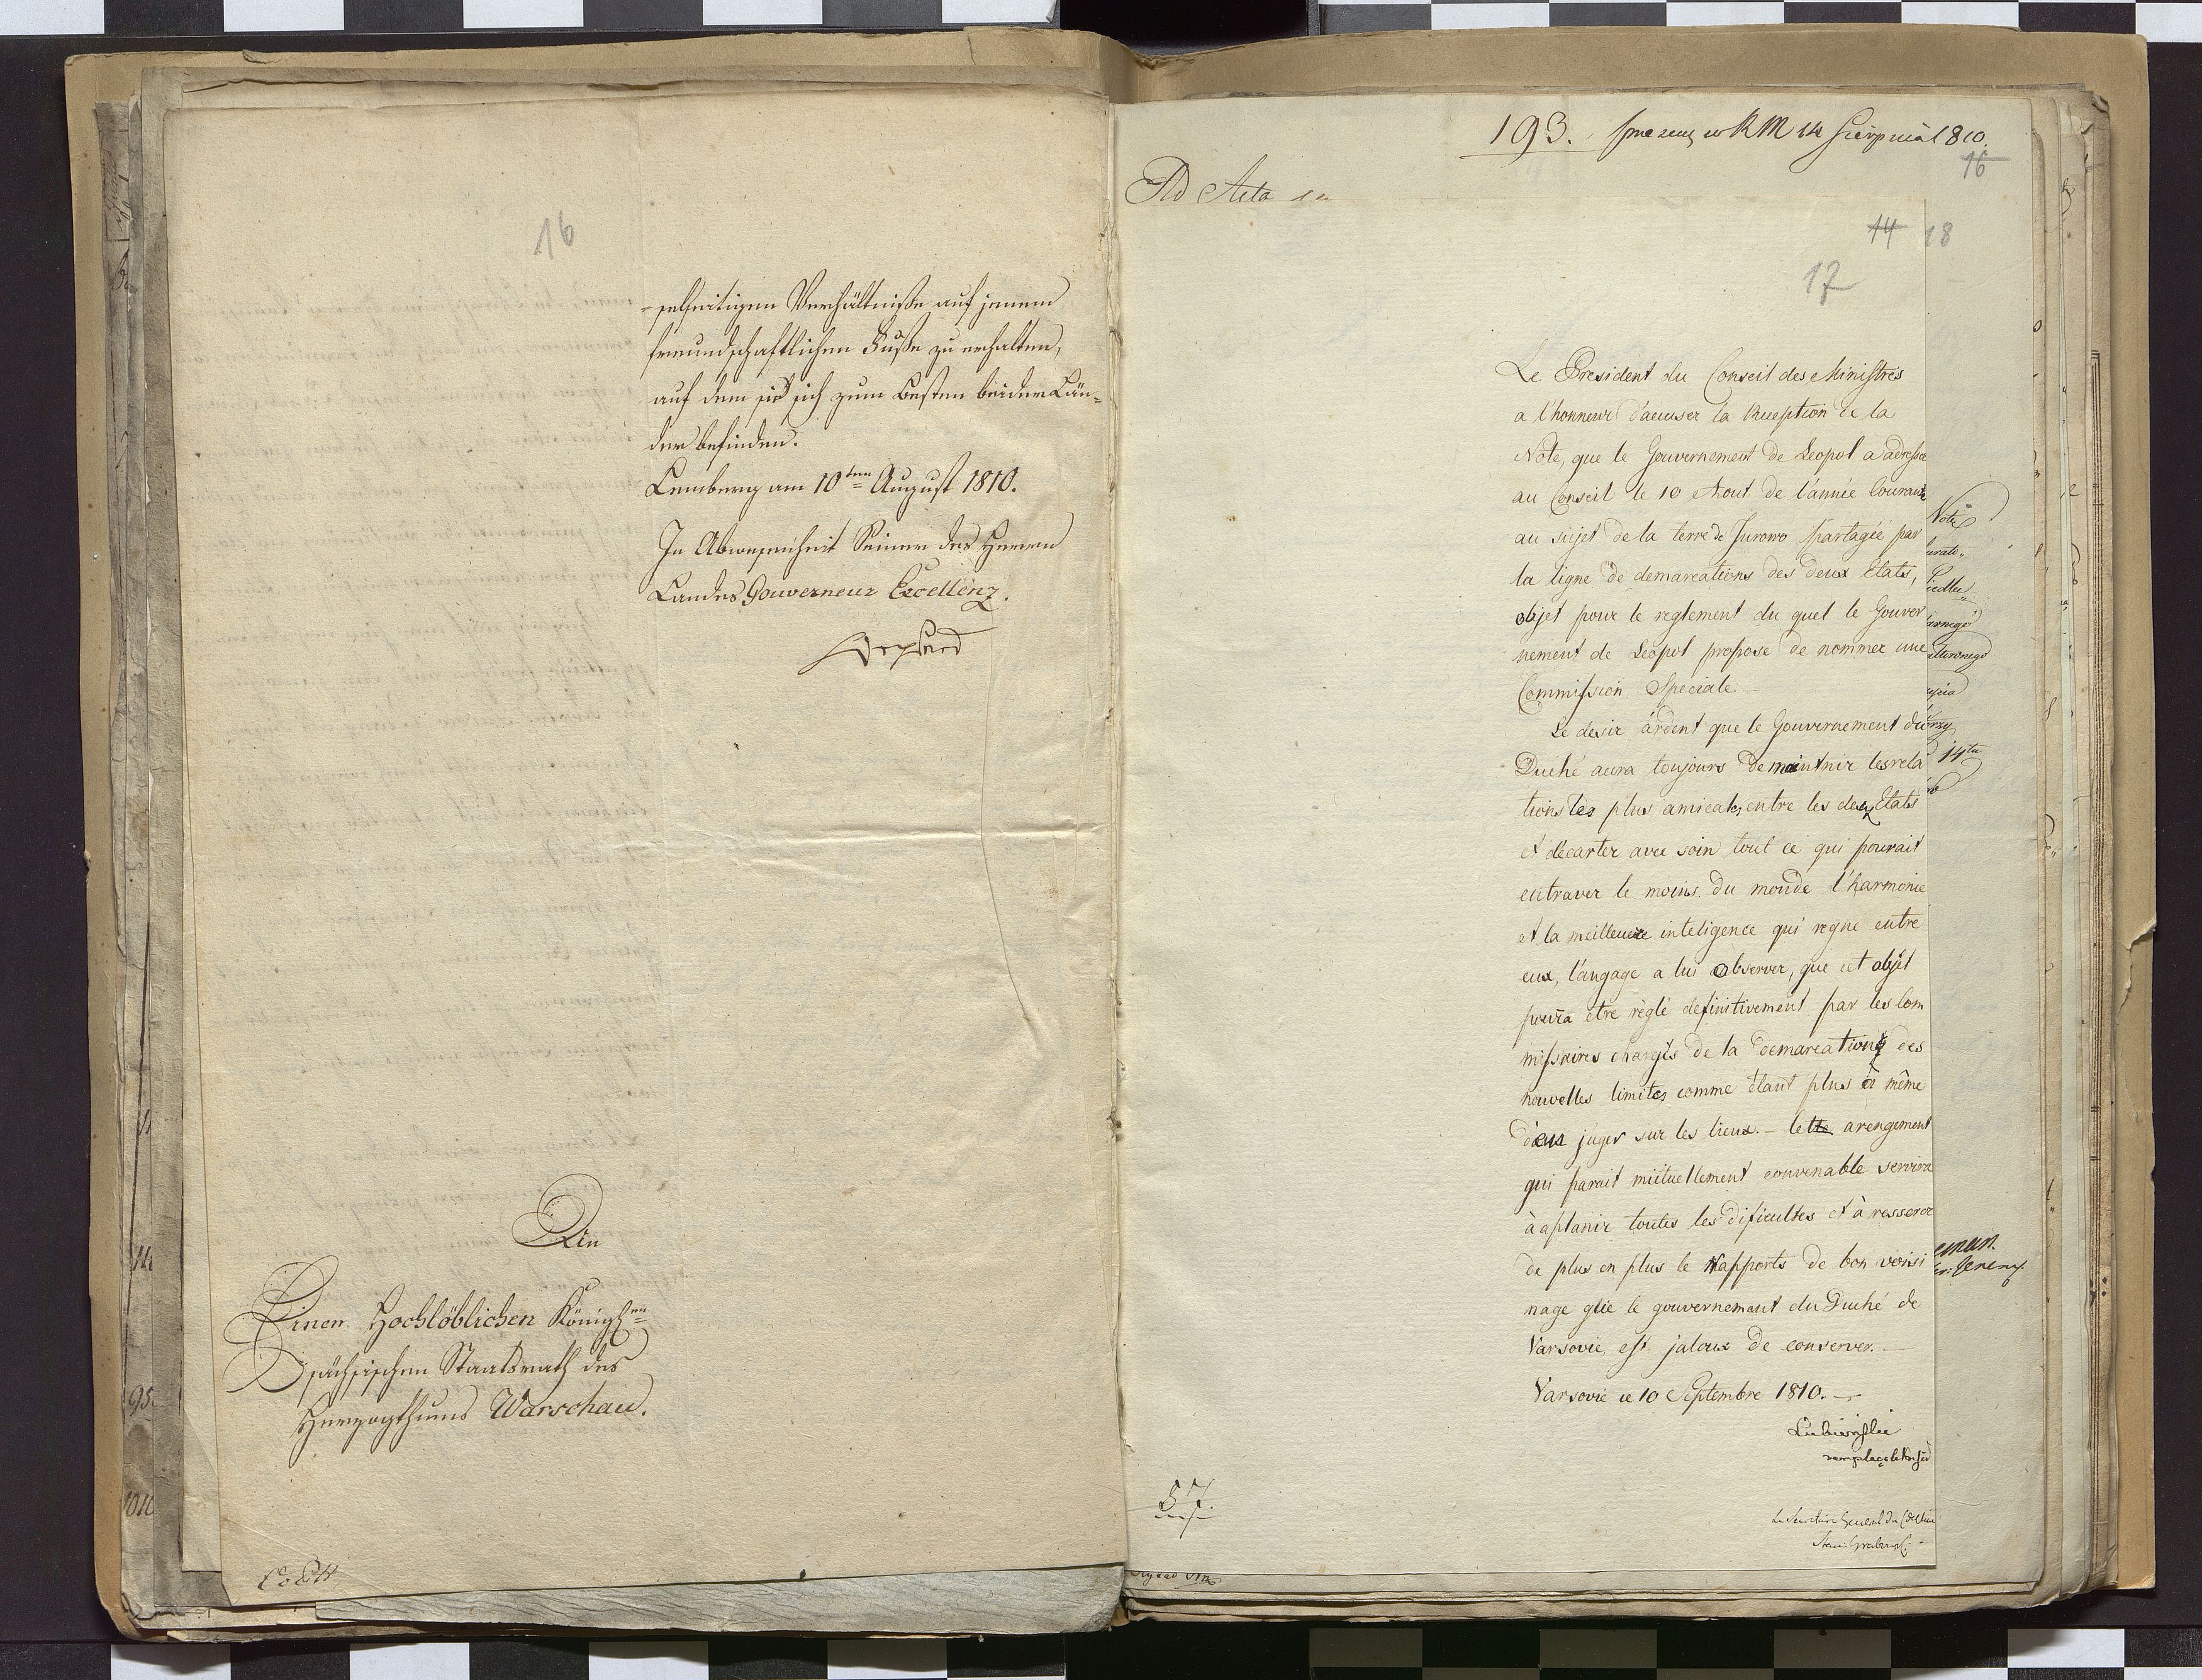 16
-selseitigen Verhältniße auf jenem
freundschaftlichen Fuße zu erhalten,
auf dem sie sich zum Besten beider Län-
der befinden.
Lemberg am 10ten August 1810.
In Abwesenheit Seiner des Herrn
Landes Gouverneur Excellenz.
An
Einen Hochlöblichen Königln
sächsischen Staatsrath des
Herzogthums Warschau.
193. w RM 14 Sierpnia 1810.
16
Ad Acta
14 18
17
Le President du Conseil des Ministres
a l'honneur d'acuser la Reception de la
Note, que le Gouvernement de Leopol a adressé
au Conseil le 10 Aout de l'année Courante
au sujet de la terre de Jurowo partagée par
la ligne de demarcations des deux Etats,
objet pour le reglement du quel le Gouver
nement de Leopol propose de nommer une
Commission Speciale.
Le desir ardent que le Gouvernement du
Duché aura toujours de maintnir les rela
tions les plus amicales entre les deux Etats
et d'ecarter avec soin tout ce qui pourait
entraver le moins du monde l'harmonie
et la meilleure inteligence qui regne entre
eux, l'angage a lui observer, que cet objet
poura etre règlé definitivement par les Com
missaires chargés de la demarcation des
nouvelles limites comme étant plus à même
d'en juger sur les lieux. – Cette arengement
qui parait mutuellement convenable servira
à aplanir toutes les dificultes et à resserer
de plus en plus le Rapports de bon voisi
nage que le gouvernement du Duché de
Varsovie, est jaloux de conserver. –
Varsovie ce 10 Septembre 1810. –
Note
14ta
Le Secretaire General du
57.